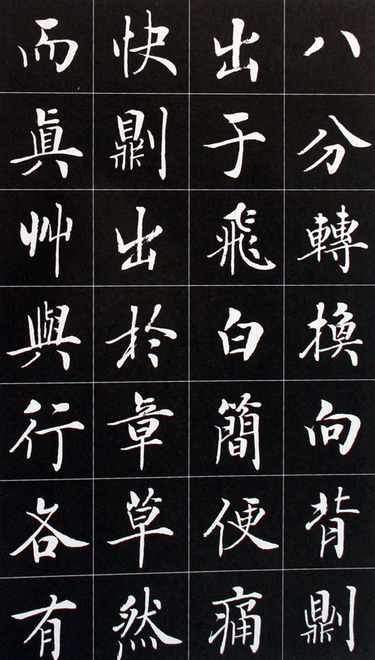 八分轉換向背𠟭
出于飛白簡便痛
快𠟭出於章草然
而眞艸與行各有